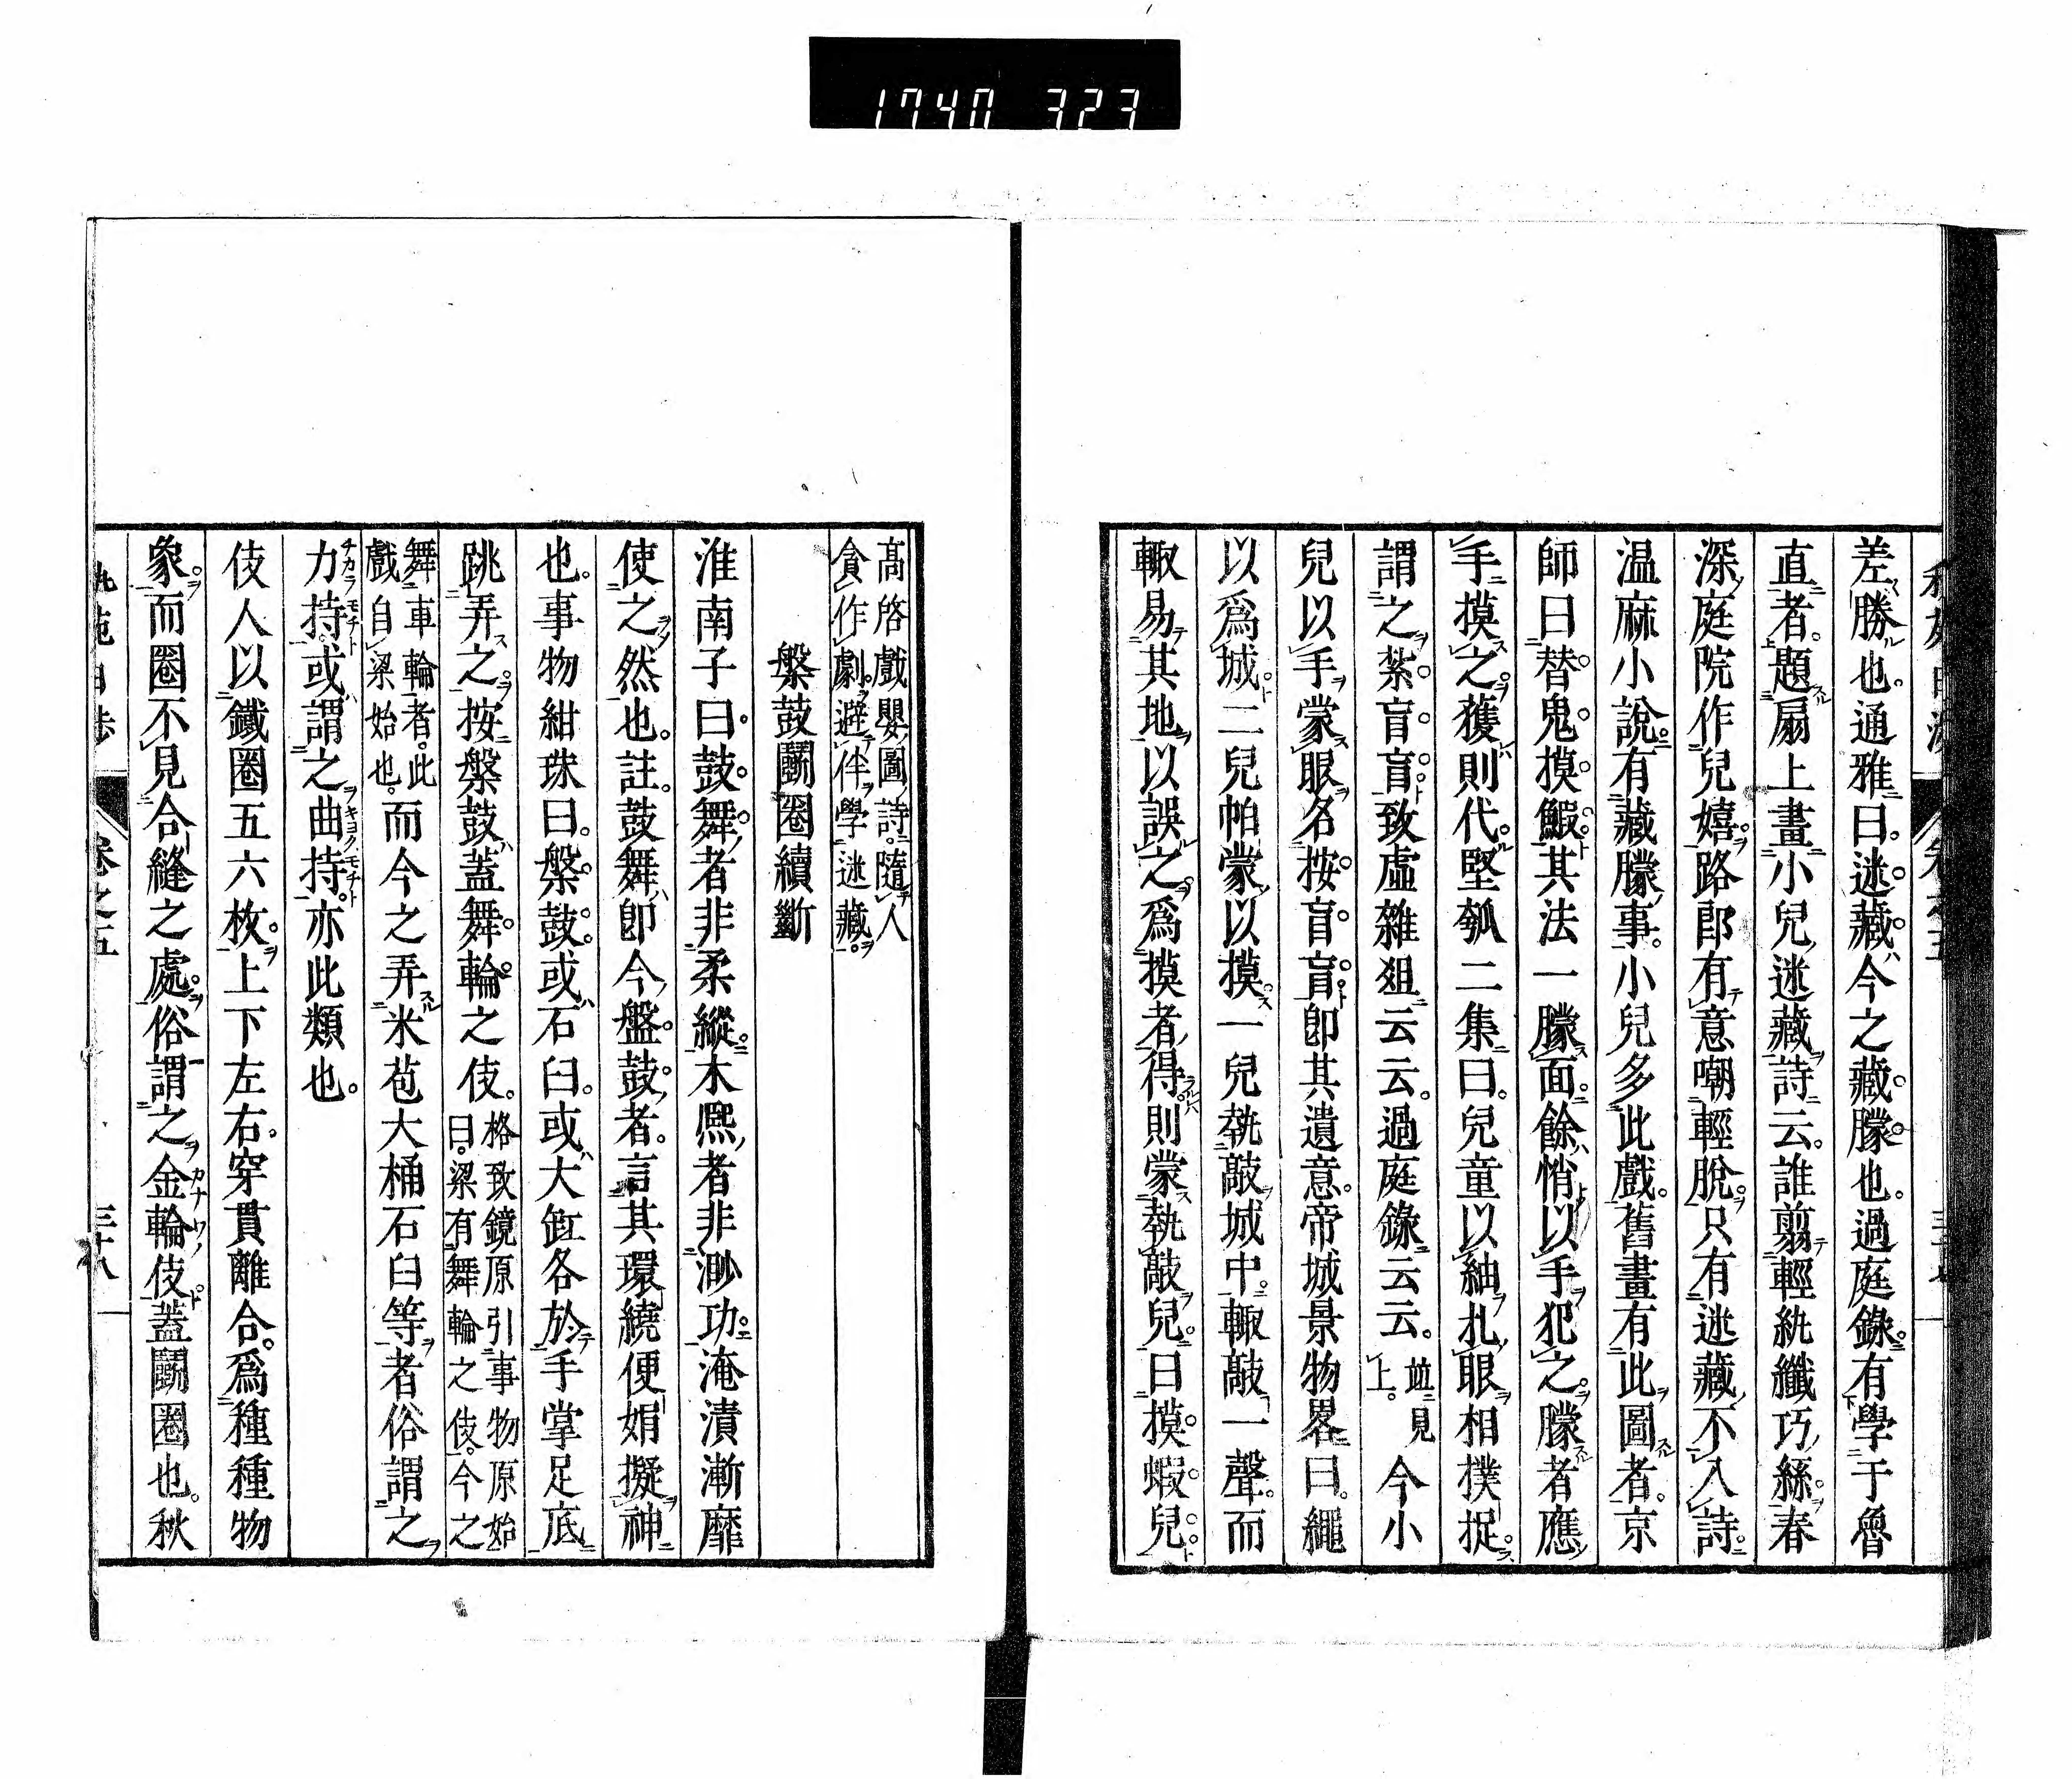 1740 323
差勝也。通雅曰。迷藏今之藏矇也。過庭錄。有學于魯
直者。題扇上畫小兒迷藏詩云。誰翦輕紈纖巧絲。春
深庭院作兒嬉。路郎有意嘲輕脫。只有迷藏不入詩。
温麻小說有藏矇事。小兒多此戲。舊畫有此圖者。京
師曰替鬼摸鰕。其法一矇面。餘悄以手犯之。矇者應
手摸之。獲則代。堅瓠二集曰。兒童以紬扎眼相撲捉。
謂之紮盲盲。致虛雜俎云云。過庭錄云云。並見上。今小
兒以手蒙眼名按盲盲。卽其遺意。帝城景物畧曰。繩
以爲城。二兒帕蒙以摸。一兒執敲城中。輙敲一聲。而
輙易其地以誤之。爲摸者得則蒙執敲兒。曰摸蝦兒。
高啓戲嬰圖詩。隨人
貪作劇。避伴學迷藏。
槃鼓鬭圈續斷
淮南子曰。鼓舞者非柔縱。木熈者非渺功。淹漬漸靡
使之然也。註。鼓舞卽今盤鼓者。言其環繞便娟擬神
也。事物紺珠曰。槃鼓。或石臼。或大缸各於手掌足底
跳弄之。按槃鼓蓋舞輪之伎。格致鏡原引事物原始
曰。梁有舞輪之伎。今之
舞車輪者。此
戲自梁始也。而今之弄米苞大桶石臼等者俗謂之
力持。或謂之曲持。亦此類也。
伎人以鐵圈五六枚。上下左右。穿貫離合。爲種種物
象。而圈不見合縫之處。俗謂之金輪伎。蓋鬭圈也。秋
卷之五
三十八